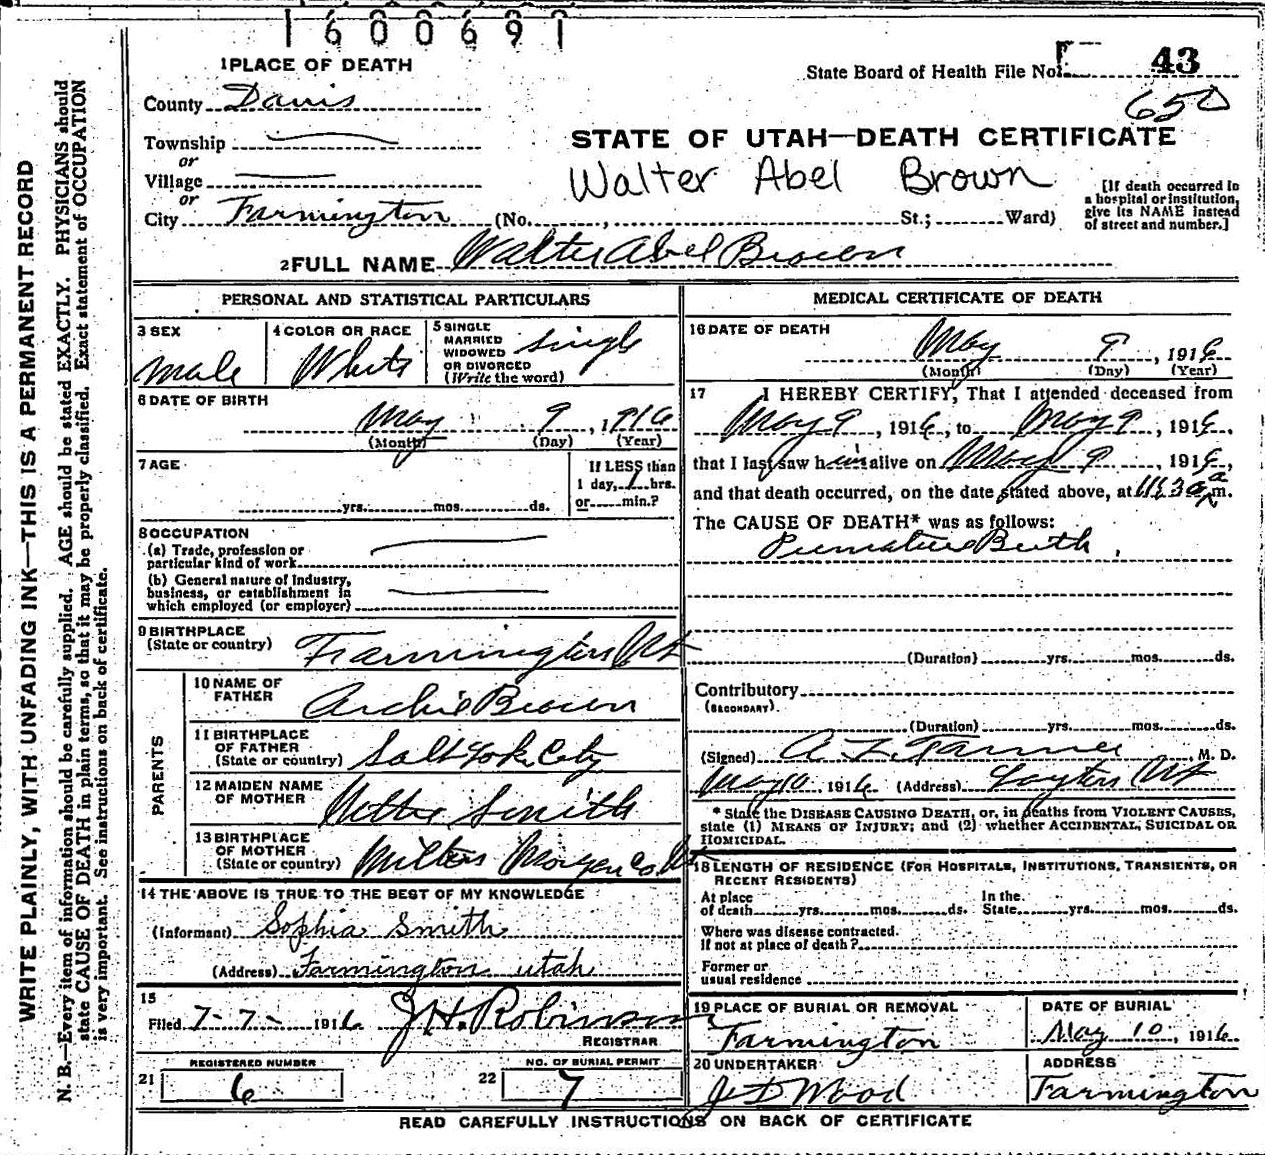 1600691
1 PLACE OF DEATH
State Board of Health File No. 43
650
County Davis
Township
or
Village
or
City Farmington (No. , St.; Ward)
STATE OF UTAH—DEATH CERTIFICATE
Walter Abel Brown
[If death occurred in
a hospital or institution,
give its NAME instead
of street and number.]
2 FULL NAME Walter Abel Brown
PERSONAL AND STATISTICAL PARTICULARS
3 SEX
male
4 COLOR OR RACE
White
5 SINGLE
MARRIED
WIDOWED
OR DIVORCED
(Write the word)
single
6 DATE OF BIRTH
May 9, 1916
(Month) (Day) (Year)
7 AGE
yrs. mos. ds.
If LESS than
1 day, 1 hrs.
or min.?
8 OCCUPATION
(a) Trade, profession or
particular kind of work
(b) General nature of industry,
business, or establishment in
which employed (or employer)
9 BIRTHPLACE
(State or country) Farmington Ut
PARENTS
10 NAME OF
FATHER Archie Brown
11 BIRTHPLACE
OF FATHER
(State or country) Salt Lake City
12 MAIDEN NAME
OF MOTHER Nettie Smith
13 BIRTHPLACE
OF MOTHER
(State or country) Milton Morgan Co. Ut
14 THE ABOVE IS TRUE TO THE BEST OF MY KNOWLEDGE
(Informant) Sophia Smith
(Address) Farmington utah
15
Filed 7-7- 1916 J.H. Robinson
REGISTRAR
REGISTERED NUMBER
21 6
NO. OF BURIAL PERMIT
22 7
MEDICAL CERTIFICATE OF DEATH
16 DATE OF DEATH
May 9, 1916
(Month) (Day) (Year)
17 I HEREBY CERTIFY, That I attended deceased from
May 9, 1916, to May 9, 1916,
that I last saw him alive on May 9, 1916,
and that death occurred, on the date stated above, at 11:30 a m.
The CAUSE OF DEATH* was as follows:
Premature Birth
(Duration) yrs. mos. ds.
Contributory
(SECONDARY)
(Duration) yrs. mos. ds.
(Signed) A. L. M. D.
May 10 1916 (Address) Layton Ut
* State the DISEASE CAUSING DEATH, or, in deaths from VIOLENT CAUSES,
state (1) MEANS OF INJURY; and (2) whether ACCIDENTAL, SUICIDAL OR
HOMICIDAL.
18 LENGTH OF RESIDENCE (FOR HOSPITALS, INSTITUTIONS, TRANSIENTS, OR
RECENT RESIDENTS)
At place
of death yrs. mos. ds.
In the
State yrs. mos. ds.
Where was disease contracted.
If not at place of death?
Former or
usual residence
19 PLACE OF BURIAL OR REMOVAL
Farmington
DATE OF BURIAL
May 10, 1916
20 UNDERTAKER
J D Wood
ADDRESS
Farmington
READ CAREFULLY INSTRUCTIONS ON BACK OF CERTIFICATE
WRITE PLAINLY, WITH UNFADING INK—THIS IS A PERMANENT RECORD
N. B.—Every item of information should be carefully supplied. AGE should be stated EXACTLY. PHYSICIANS should
state CAUSE OF DEATH in plain terms, so that it may be properly classified. Exact statement of OCCUPATION
is very important. See instructions on back of certificate.